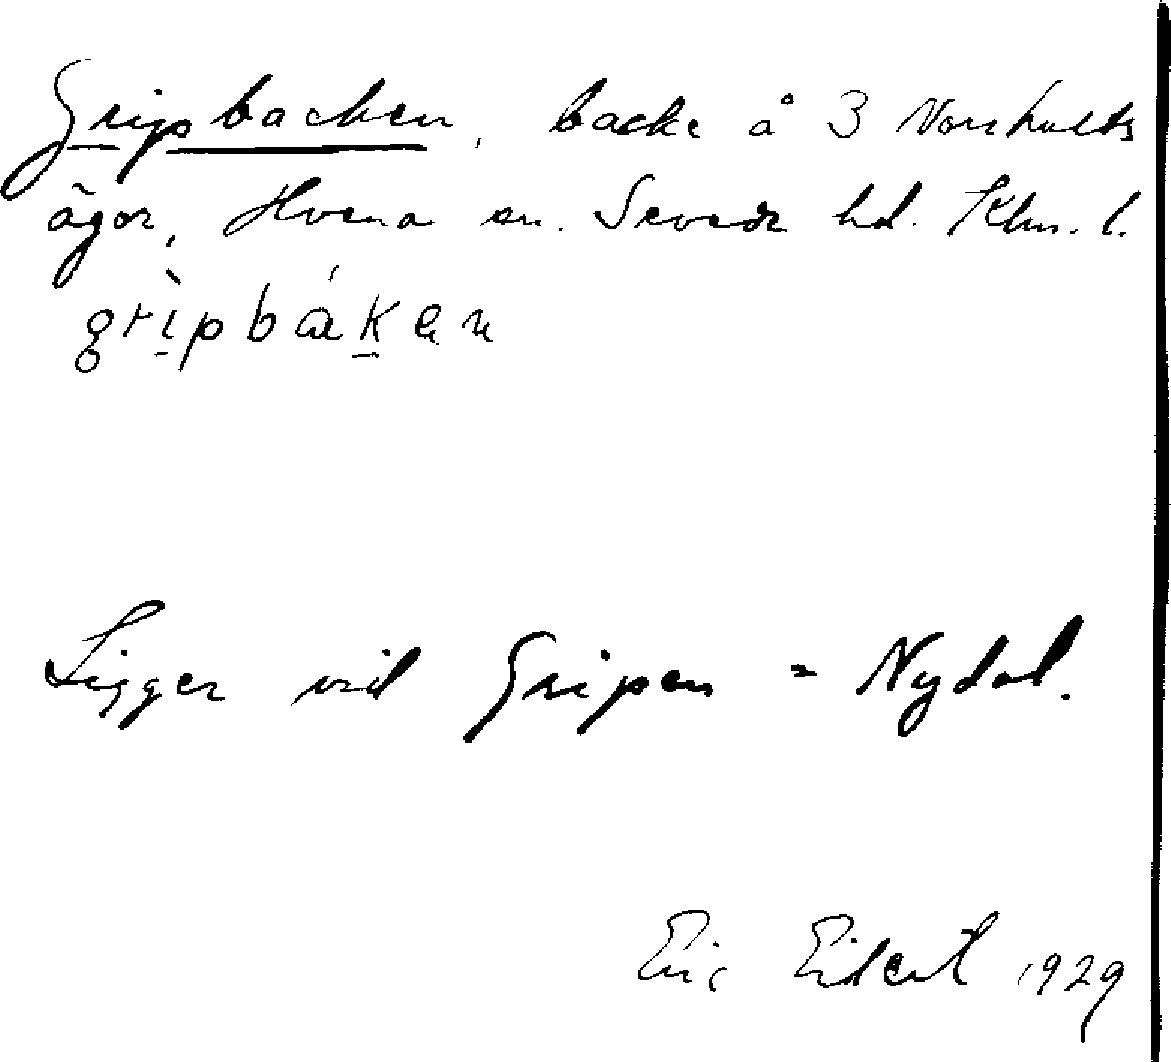 Gripbacken, backe å 3 Norrhults
ägor, Hvena sn. Sevede hd. Klm. l.
grìpbákən
Ligger vid Gripen = Nydal.
Eric 1929